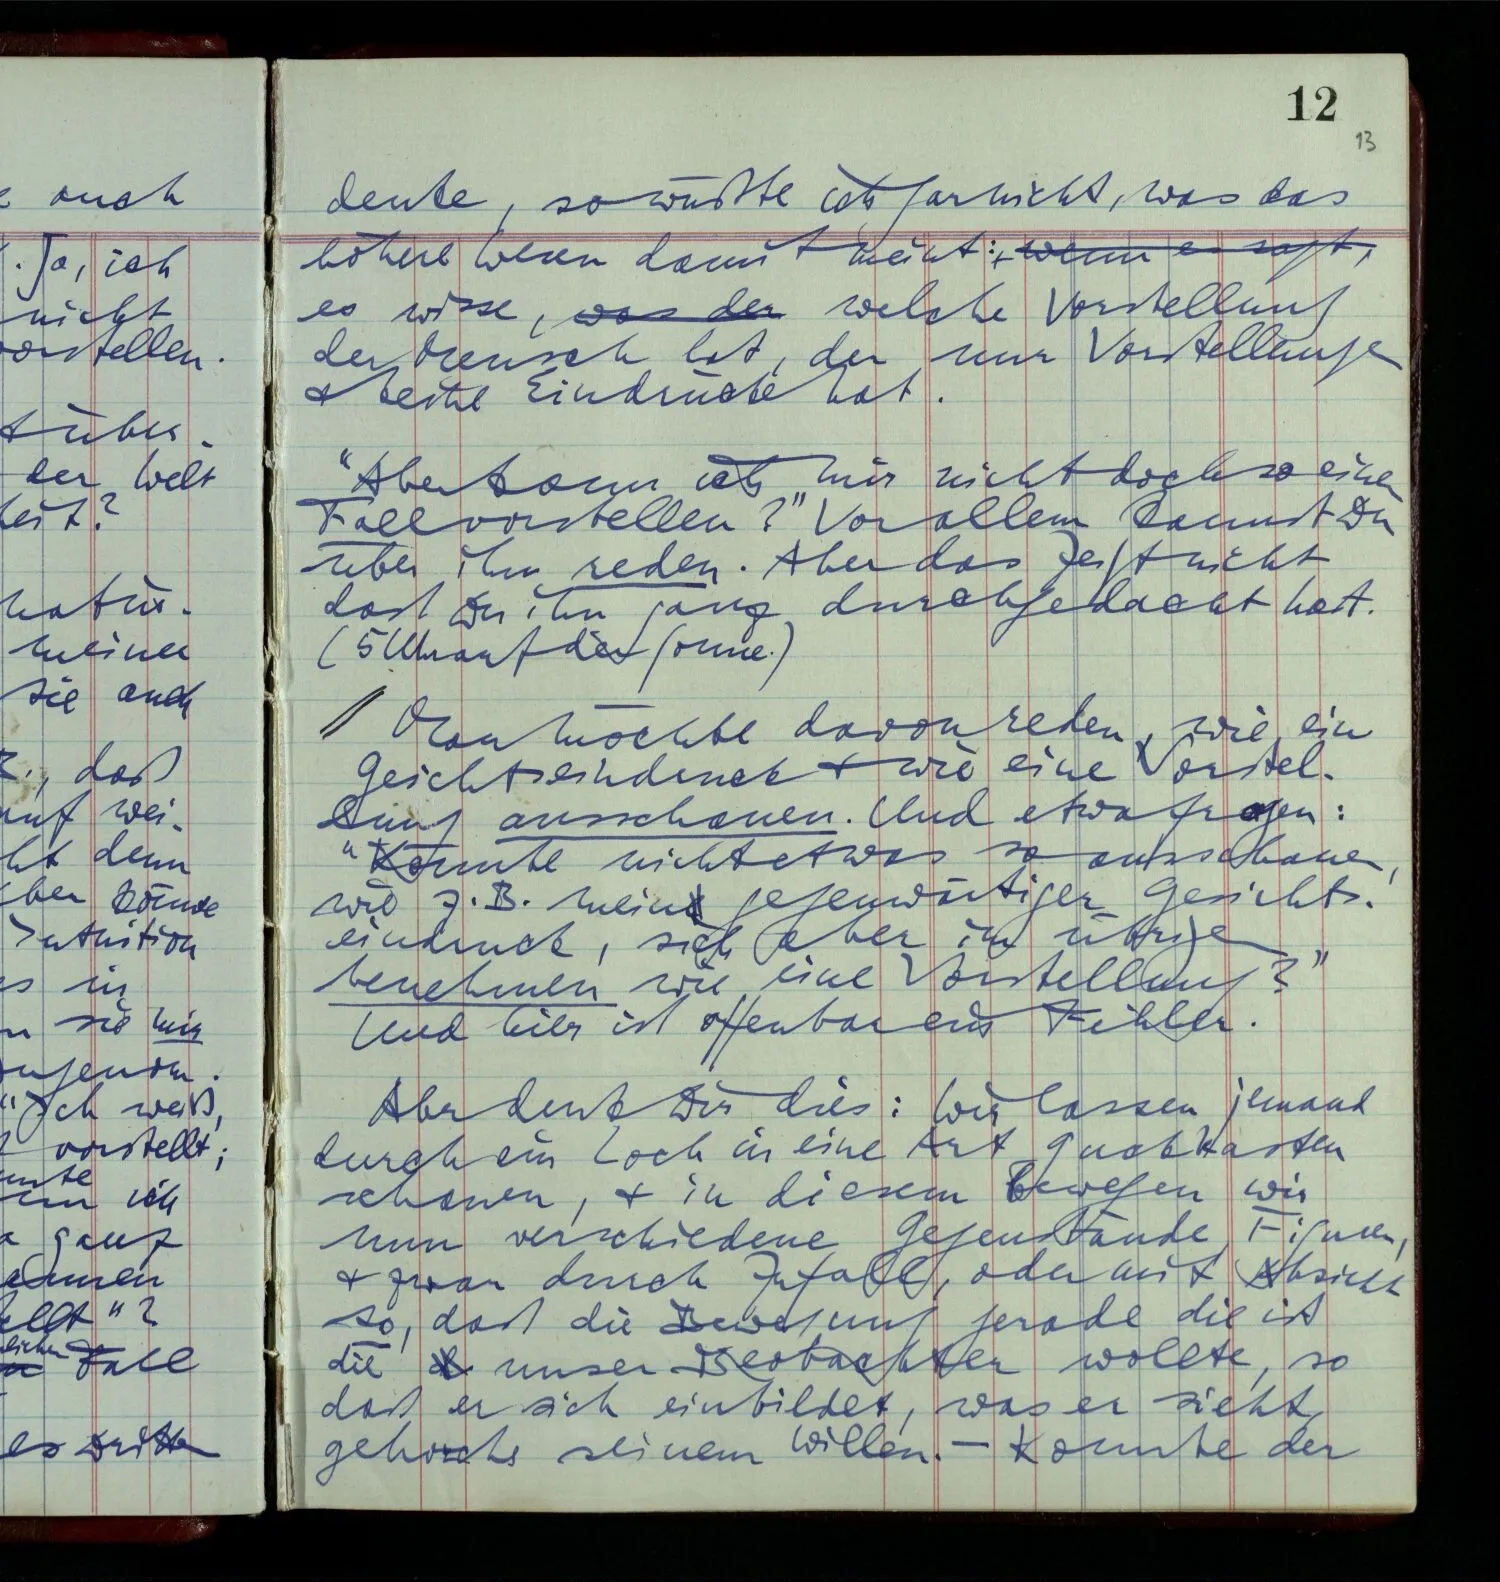 e auch
. Ja, ich
nicht
vorstellen.
t über-
der Welt
heit?
natür-
meiner
sie auch
B., daß
auf wei-
cht denn
ber könne
Intuition
es in
n sie mir
angenom-
"Ich weiß,
vorstellt;
nnte
nn ich
a ganz
ehmen
ellt"?
lichen
Fall
es Dritte
12
13
denke, so wüßte ich garnicht, was das
höhere Wesen damit meint: wenn es sagt,
es wisse, was der welche Vorstellung
der Mensch hat, der nur Vorstellungen
& keine Eindrücke hat.
"Aber kann ich mir nicht doch so einen
Fall vorstellen?" Vor allem kannst Du
über ihn reden. Aber das zeigt nicht
daß Du ihn ganz durchgedacht hast.
(5 Uhr auf der Sonne.)
// Man möchte davon reden, wie ein
Gesichtseindruck & wie eine Vorstel-
lung ausschauen. Und etwa fragen:
"Könnte nicht etwas so ausschauen,
wie z.B. mein gegenwärtiger Gesichts-
eindruck, sich aber im übrigen
benehmen wie eine Vorstellung?"
Und hier ist offenbar ein Fehler.
Aber denk Dir dies: Wir lassen jemand
durch ein Loch in eine Art Guckkasten
schauen, & in diesem bewegen wir
nun verschiedene Gegenstände, Figuren,
& zwar durch Zufall, oder mit Absicht
so, daß die Bewegung gerade die ist
die unser Beobachter wollte, so
daß er sich einbildet, was er sieht,
gehorche seinem Willen. – Könnte der